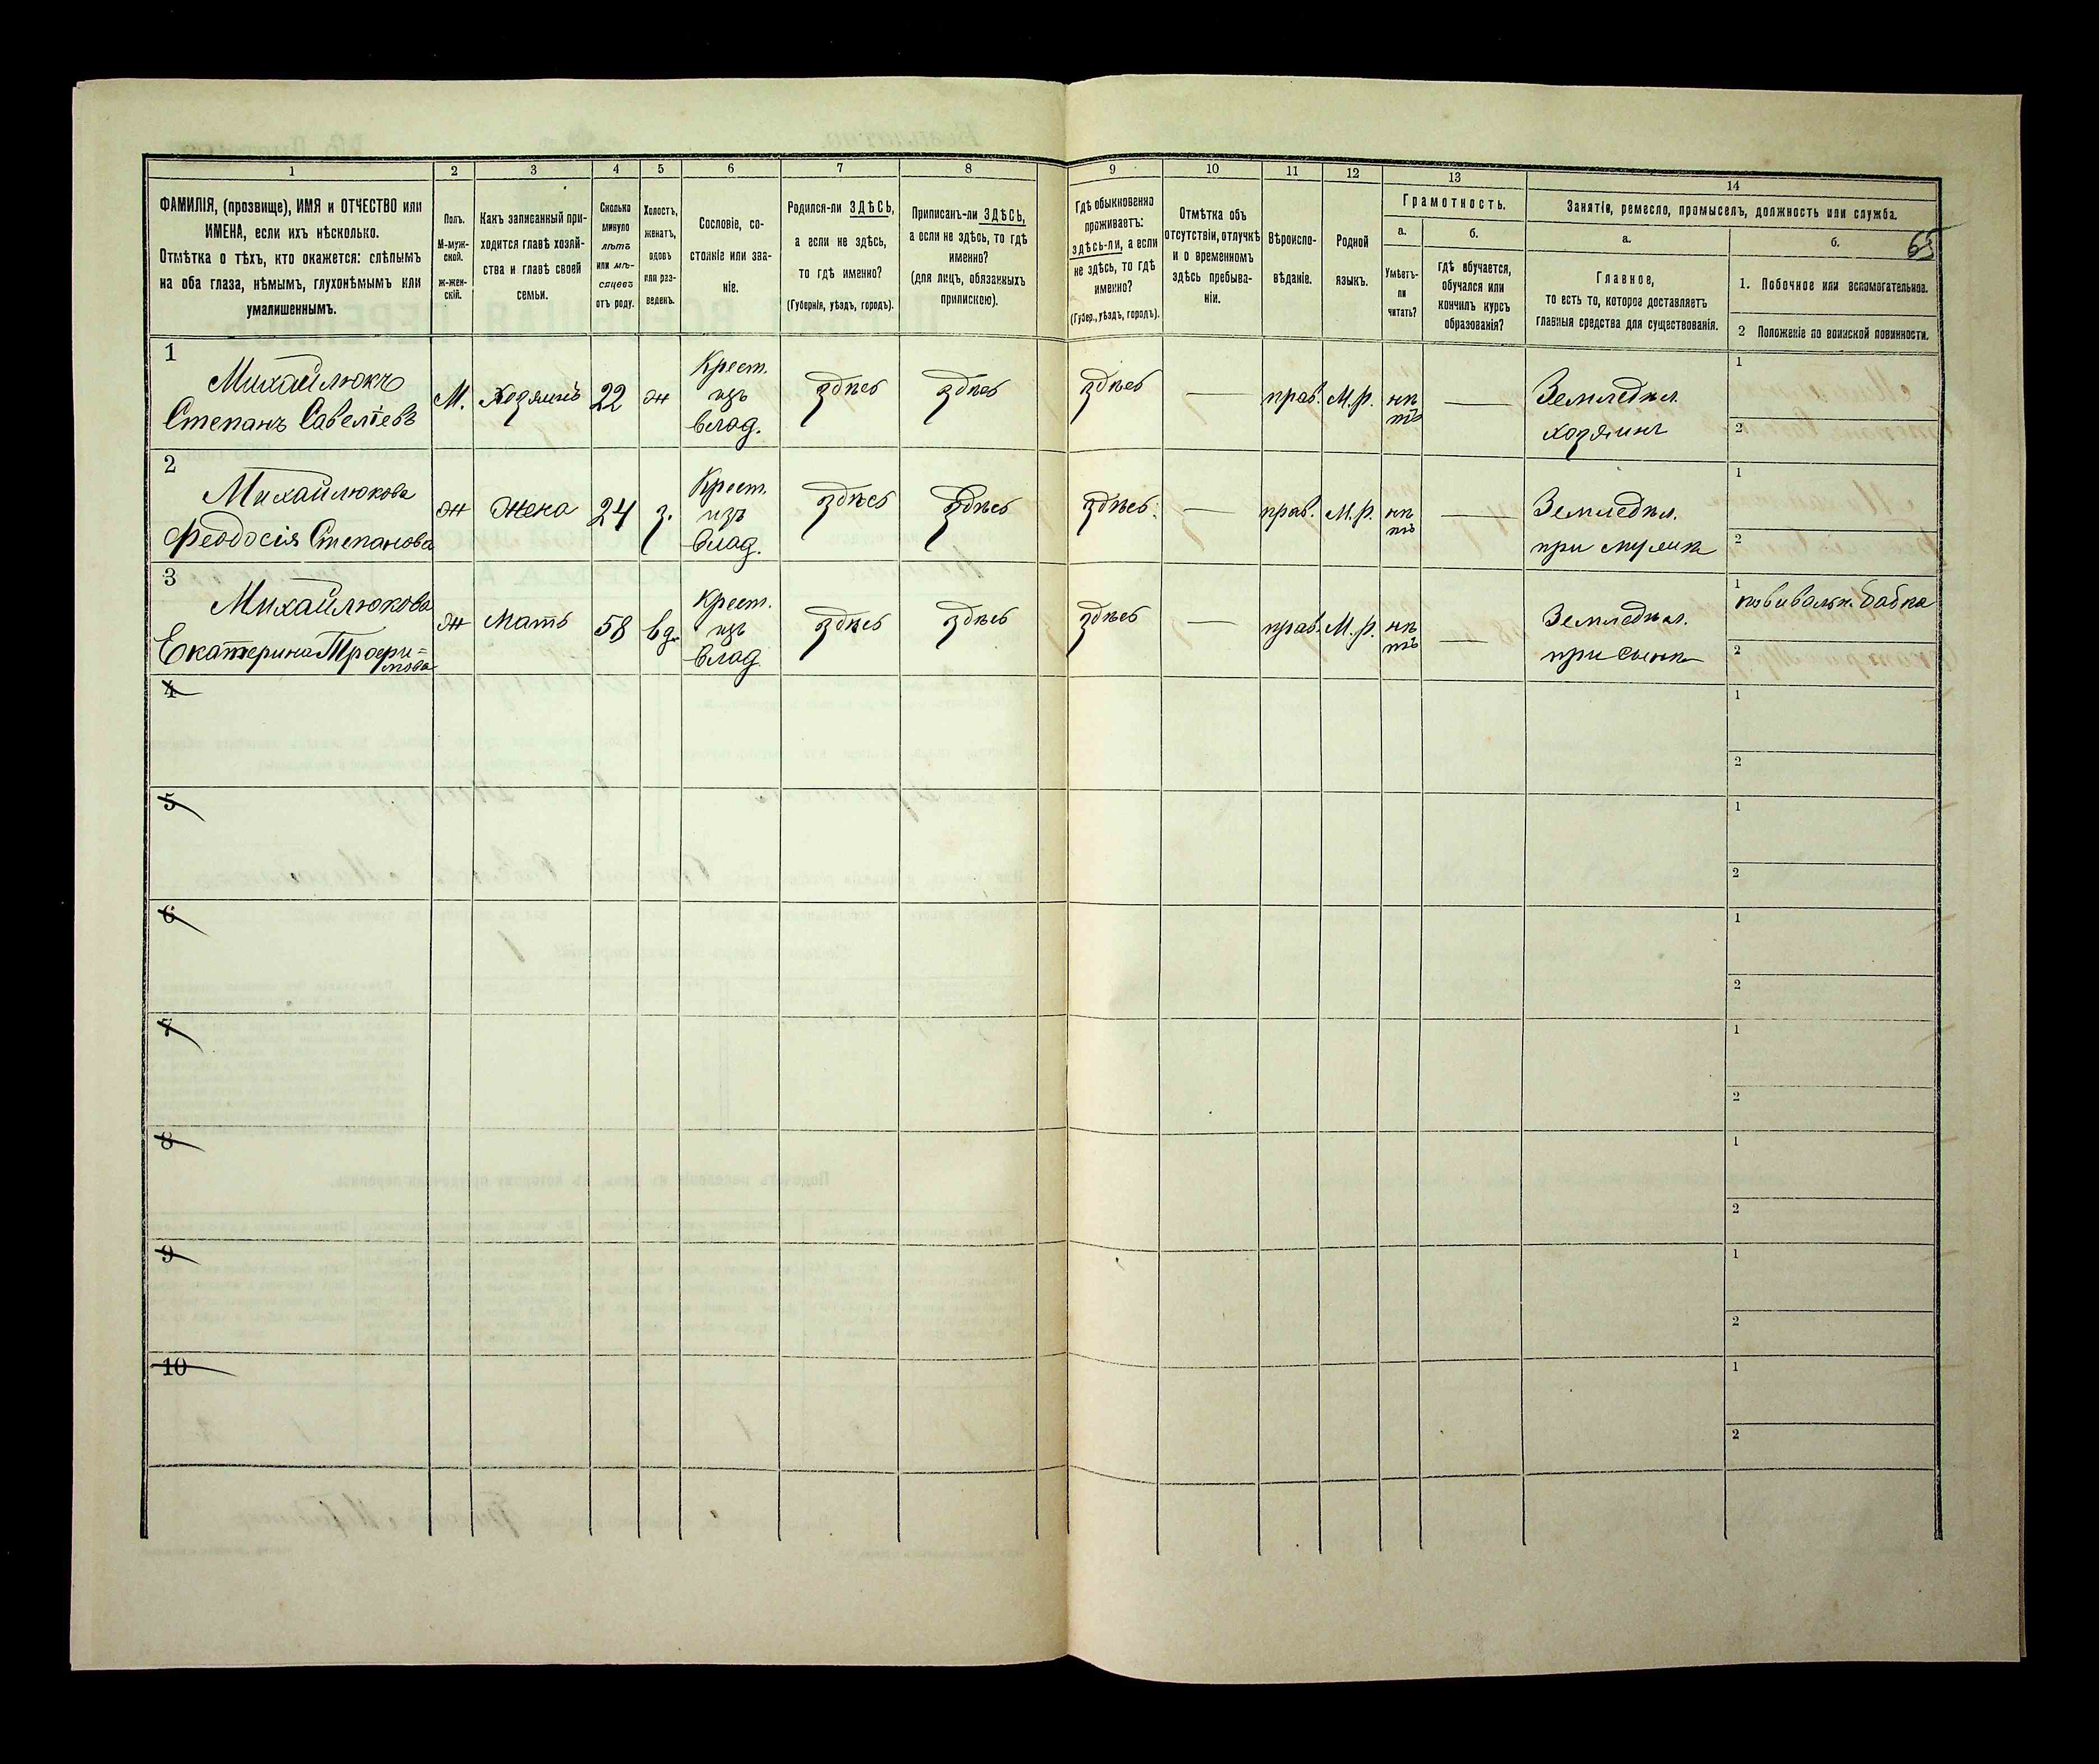 1
2
3
4
5
6
7
8
9
10
11
12
13
14
ФАМИЛІЯ, (прозвище), ИМЯ и ОТЧЕСТВО или
ИМЕНА, если ихъ нѣсколько.
Отмѣтка о тѣхъ, кто окажется: слѣпымъ
на оба глаза, нѣмымъ, глухонѣмымъ или
умалишеннымъ.
Полъ.
М-муж-
ской.
ж-жен-
скій.
Какъ записанный при-
ходится главѣ хозяй-
ства и главѣ своей
семьи.
Сколько
минуло
лѣтъ
или мѣ-
сяцевъ
отъ роду.
Холостъ,
женатъ,
вдовъ
или раз-
веденъ.
Сословіе, со-
стояніе или зва-
ніе.
Родился-ли ЗДѢСЬ,
а если не здѣсь,
то гдѣ именно?
(Губернія, уѣздъ, городъ).
Приписанъ-ли ЗДѢСЬ,
а если не здѣсь, то гдѣ
именно?
(для лицъ, обязанныхъ
припискою).
Гдѣ обыкновенно
проживаетъ:
здѣсь-ли, а если
не здѣсь, то гдѣ
именно?
(Губер., уѣздъ, городъ).
Отмѣтка объ
отсутствіи, отлучкѣ
и о временномъ
здѣсь пребыва-
ніи.
Вѣроиспо-
вѣданіе.
Родной
языкъ.
Грамотность.
а.
Умѣетъ-
ли
читать?
б.
гдѣ обучается,
обучался или
кончилъ курсъ
образованія?
Занятіе, ремесло, промыселъ, должность или служба.
а.
Главное,
то есть то, которое доставляетъ
главныя средства для существованія.
б.
65
1. Побочное или вспомогательное.
2 Положеніе по воинской повинности.
1
Михайлюкъ
Степанъ Савеліевъ
М.
Хозяинъ
22
ж
Крест.
изъ
влад.
здѣсь
здѣсь
здѣсь
—
прав.
М.р.
нѣ
тъ
—
Земледѣл.
хозяинъ
1
2
2
Михайлюкова
Феодосія Степанова
ж
Жена
24
з.
Крест.
изъ
влад.
здѣсь
здѣсь
здѣсь.
—
прав.
М.р.
нѣ
тъ
—
Земледѣл.
при мужѣ
1
2
3
Михайлюкова
Екатерина Трофи=
мова
ж
Мать
58
вд.
Крест.
изъ
влад.
здѣсь
здѣсь
здѣсь
—
прав.
М.р.
нѣ
тъ
—
Земледѣл.
при сынѣ
1
повивальн. бабка
2
4
1
2
5
1
2
6
1
2
7
1
2
8
1
2
9
1
2
10
1
2